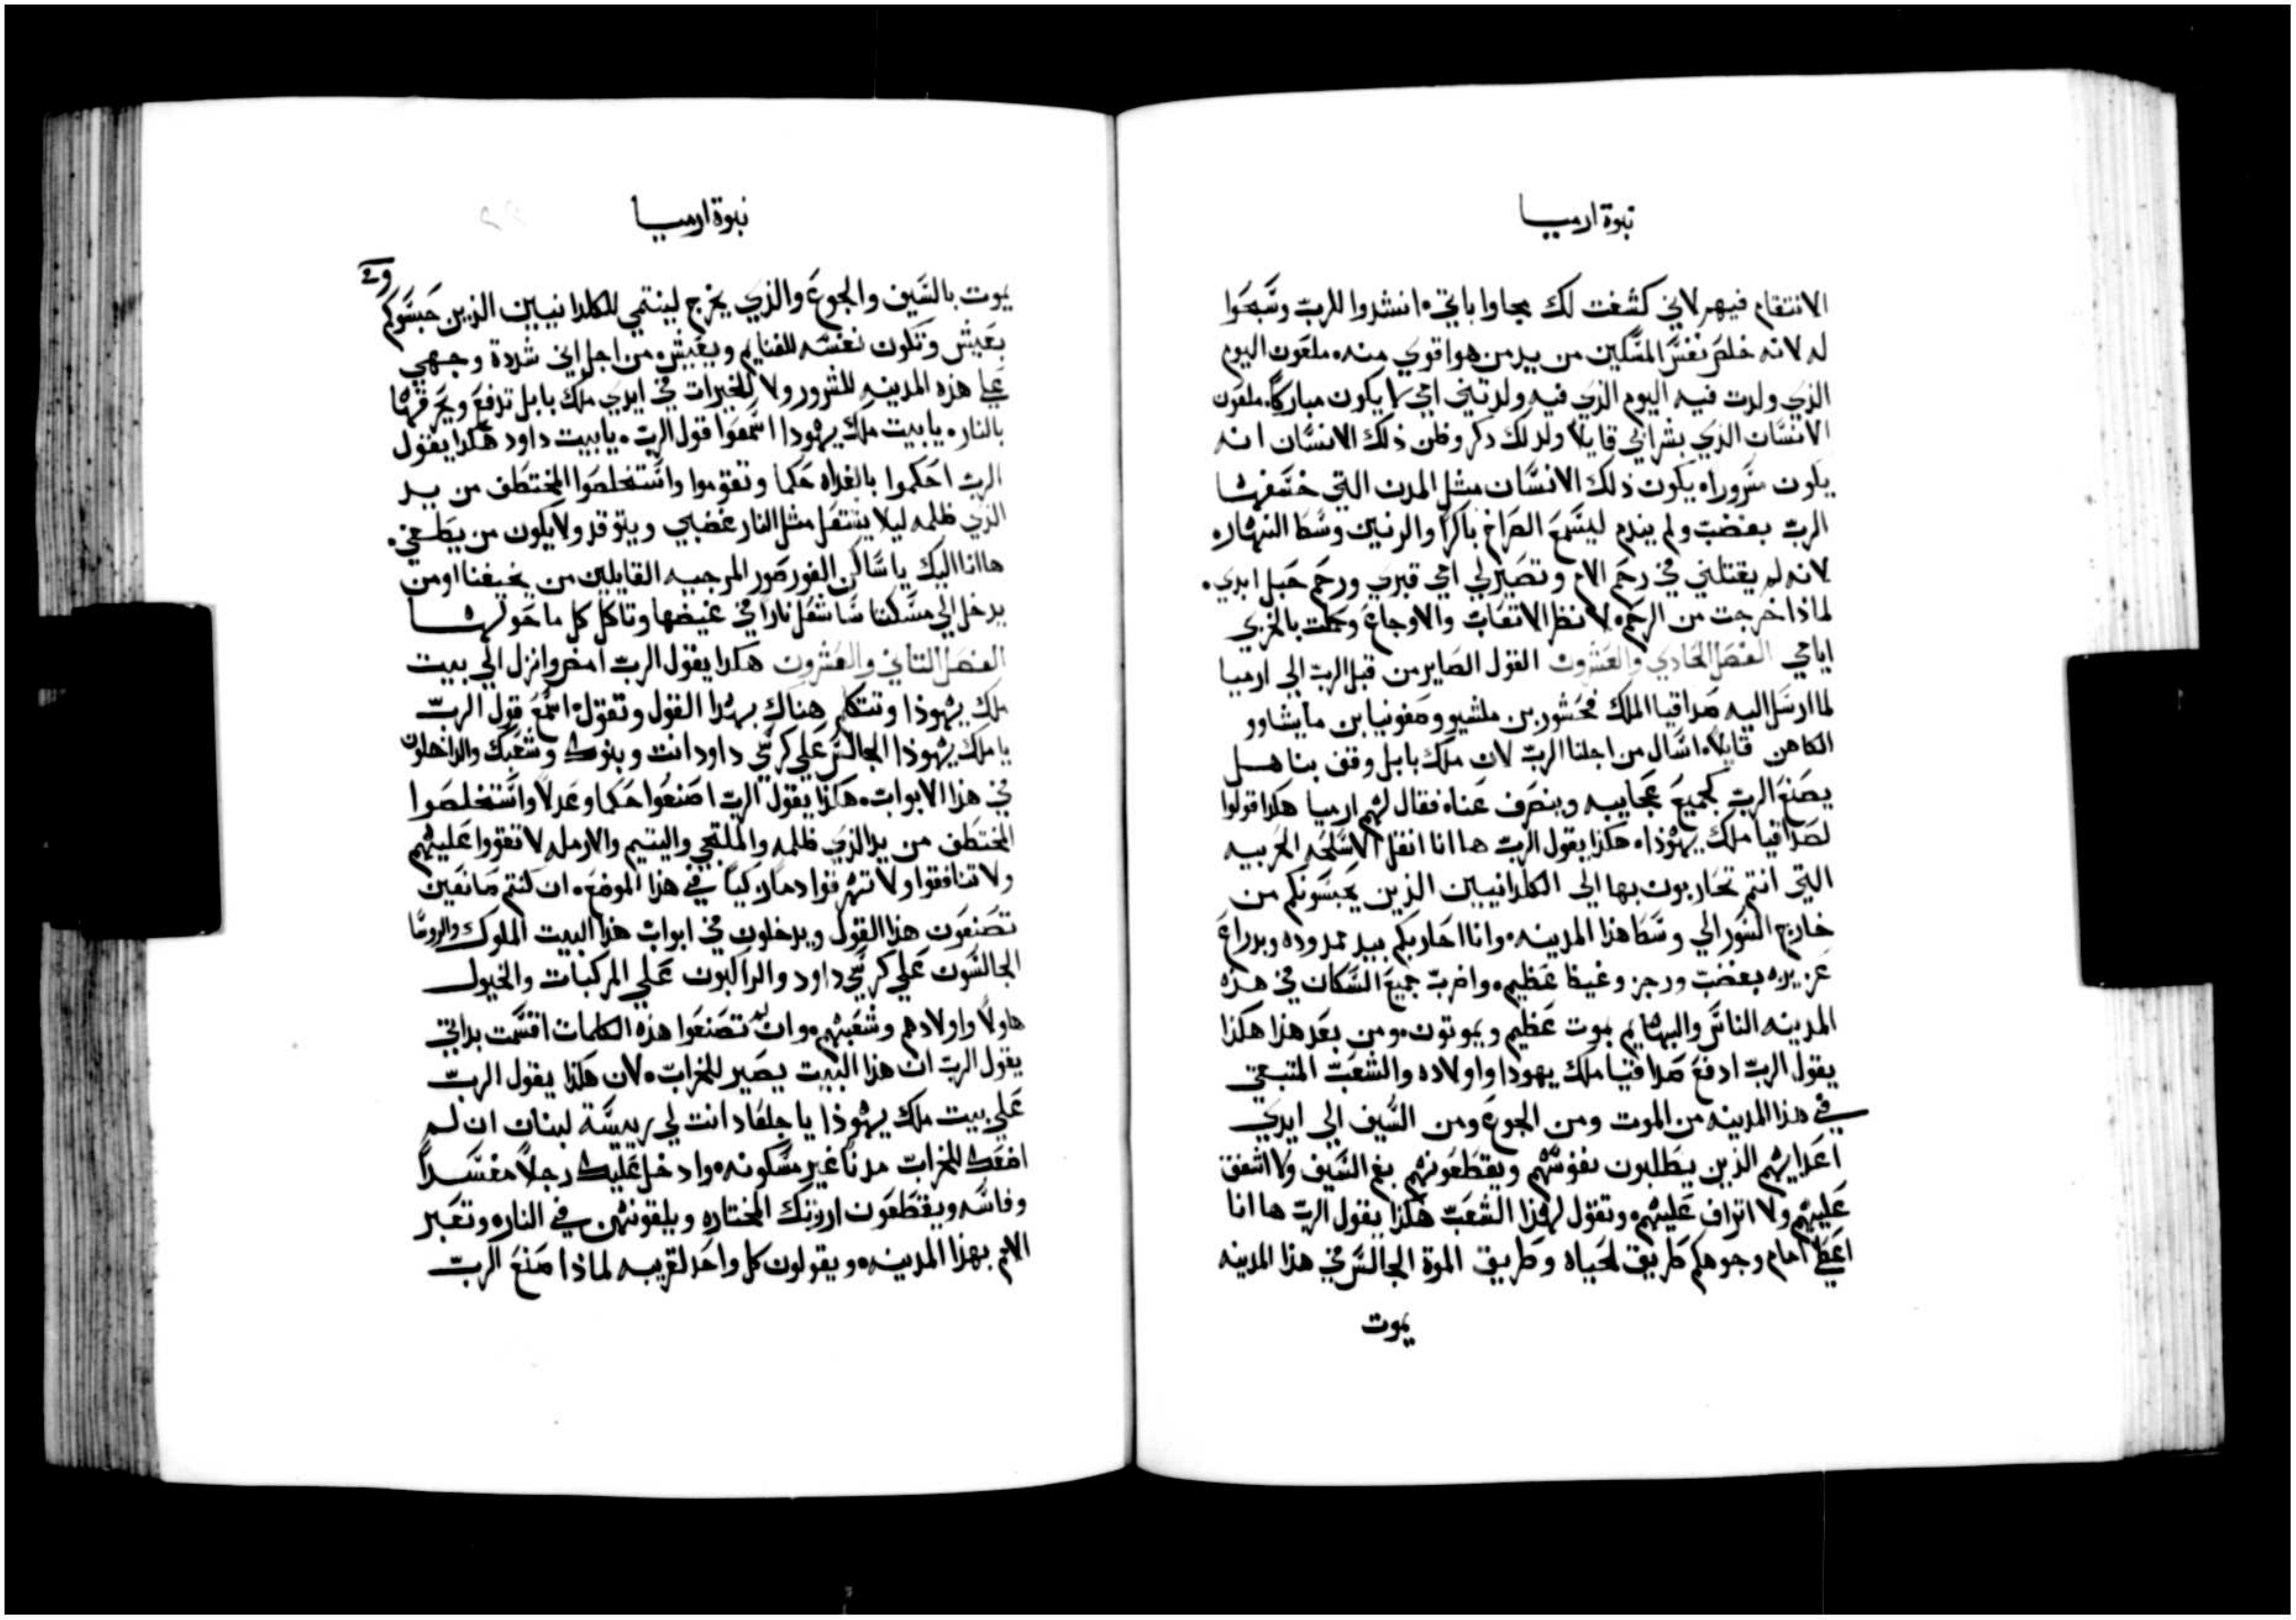 نبوة ارميا
الانتقام فيهم لاني كشفت لك مجاوباتي. انشدوا للرب وسبحوا
له لانه خلص نفس المسكين من يد من هوا قوي منه. ملعون اليوم
الذي ولدت فيه اليوم الذي فيه ولدتني امي لا يكون مباركا. ملعون
الانسان الذي بشر ابي قايلا ولد لك دكر وظن ذلك الانسان انه
يكون سرورا. يكون ذلك الانسان مثل المدن التي خسفها
الرب بغضب ولم يندم ليسمع الصراخ باكرا والرنين وسط النهار.
لانه لم يقتلني في رحم الام وتصير لي امي قبري ورحم حبل ابدي.
لماذا خرجت من الرحم. لانظر الاتعاب والاوجاع وكملت بالخزي
ايامي الفصل الحادي والعشرون القول الصاير من قبل الرب الي ارميا
لما ارسل اليه صداقيا الملك فحشور بن ملشيو وصفونيا بن مايشاوو
الكاهن قايلا. اسال من اجلنا الرب لان ملك بابل وقف بنا هل
يصنع الرب كجميع عجايبه وينصرف عنا. فقال لهم ارميا هكذا قولوا
لصداقيا ملك يهوذا. هكذا يقول الرب ها انا انقل الاسلحه الحربيه
التي انتم تحاربون بها الي الكلدانيين الذين يحبسونكم من
خارج السور الي وسط هذا المدينه. وانا احاربكم بيد ممدوده وبدراع
عزيزه بغضب ورجز وغيظ عظيم. واضرب جميع السكان في هذه
المدينه الناس والبهايم بموت عظيم ويموتون. ومن بعد هذا هكذا
يقول الرب ادفع صداقيا ملك يهودا واولاده والشعب المتبقي
في هذا المدينه من الموت ومن الجوع ومن السيف الي ايدي
اعدايهم الذين يطلبون نفوسهم ويقطعونهم بفم السيف ولا اشفق
عليهم ولا اتراف عليهم. وتقول لهذا الشعب هكذا يقول الرب ها انا
اعطي امام وجوهكم طريق الحياه وطريق الموة الجالس في هذا المدينه
يموت
نبوة ارميا
يموت بالسيف والجوع والذي يخرج لينتمي للكلدانيين الذين حبسوكم
يعيش وتكون نفسه للغنايم ويعيش. من اجل اني شددة وجهي
علي هذه المدينه للشرور ولا للخيرات في ايدي ملك بابل تدفع ويحرقها
بالنار. يا بيت ملك يهودا اسمعوا قول الرب. يا بيت داود هكدا يقول
الرب احكموا بالغداه حكما وتقوموا واستخلصوا المختطف من يد
الذي ظلمه ليلا يشتعل مثل النار غضبي ويتوقد ولا يكون من يطفي.
ها انا اليك يا ساكن الغور صور المرجيه القايلين من يخيفنا او من
يدخل الي مسكننا سا شعل نارا في غيضها وتاكل كل ما حولها
الفصل التاني والعشرون هكدا يقول الرب امض وانزل الي بيت
ملك يهوذا وتتكلم هناك بهدا القول وتقول. اسمع قول الرب
يا ملك يهوذا الجالس علي كرسي داود انت وبنوك وشعبك والداخلون
في هذا الابواب. هكذا يقول الرب اصنعوا حكما وعدلا واستخلصوا
المختطف من يد الذي ظلمه والملتجي واليتيم والارمله لا تقووا عليهم
ولا تنافقوا ولا تهرقوا دما زكيا في هذا الموضع. ان كنتم صانعين
تصنعون هذا القول ويدخلون في ابواب هذا البيت الملوك والروسا
الجالسون علي كرسي داود والراكبون علي المركبات والخيول
هاولا واولادهم وشعبهم. وان لم تصنعوا هذه الكلمات اقسمت بداتي
يقول الرب ان هذا البيت يصير للخراب. لان هكذا يقول الرب
علي بيت ملك يهوذا يا جلعاد انت لي رييسة لبنان ان لم
اضعك للخراب مدنا غير مسكونه. وادخل عليك رجلا مفسدا
وفاسه ويقطعون ارزتك المختاره ويلقونهن في النار. وتعبر
الامم بهذا المدينه. ويقولون كل واحد لقريبه لماذا صنع الرب